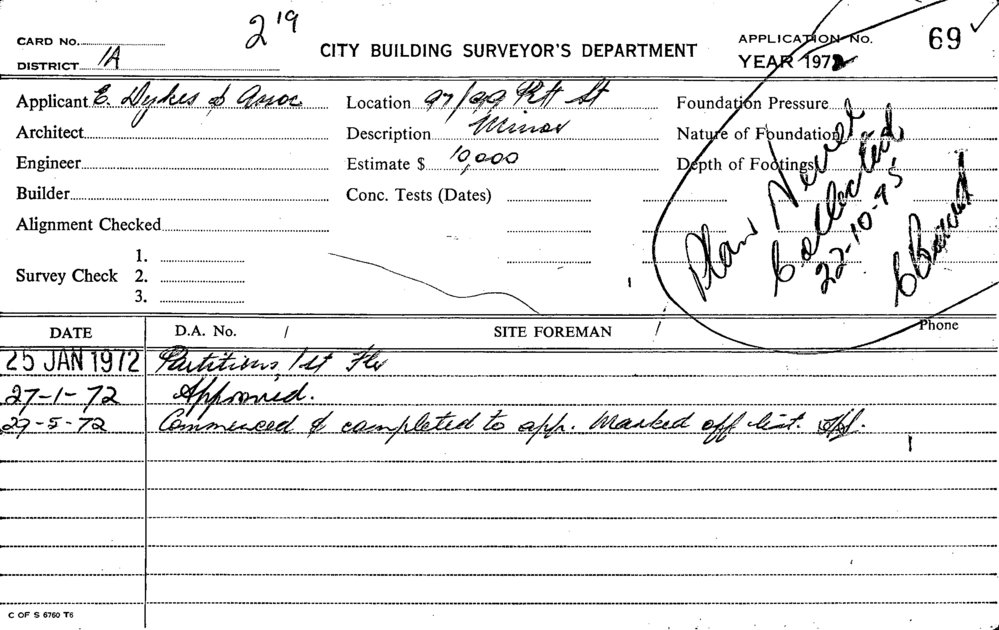 2'19
CARD No.
CITY BUILDING SURVEYOR'S DEPARTMENT
APPLICATION No. 69
DISTRICT 1A
YEAR 1972
Applicant E. Dykes & Assoc
Location 97/99 Pitt St
Foundation Pressure
Architect
Description Minor
Nature of Foundation
Engineer
Estimate $ 10,000
Depth of Footings
Builder
Conc. Tests (Dates)
Alignment Checked
Survey Check 1.
2.
3.
Plans Never
Collected
22-10-75
DATE D.A. No. / SITE FOREMAN / Phone
25 JAN 1972 Partitions, 1st Flr
27-1-72 Approved.
29-5-72 Commenced & completed to app. Marked off list.
C OF S 6760 T6